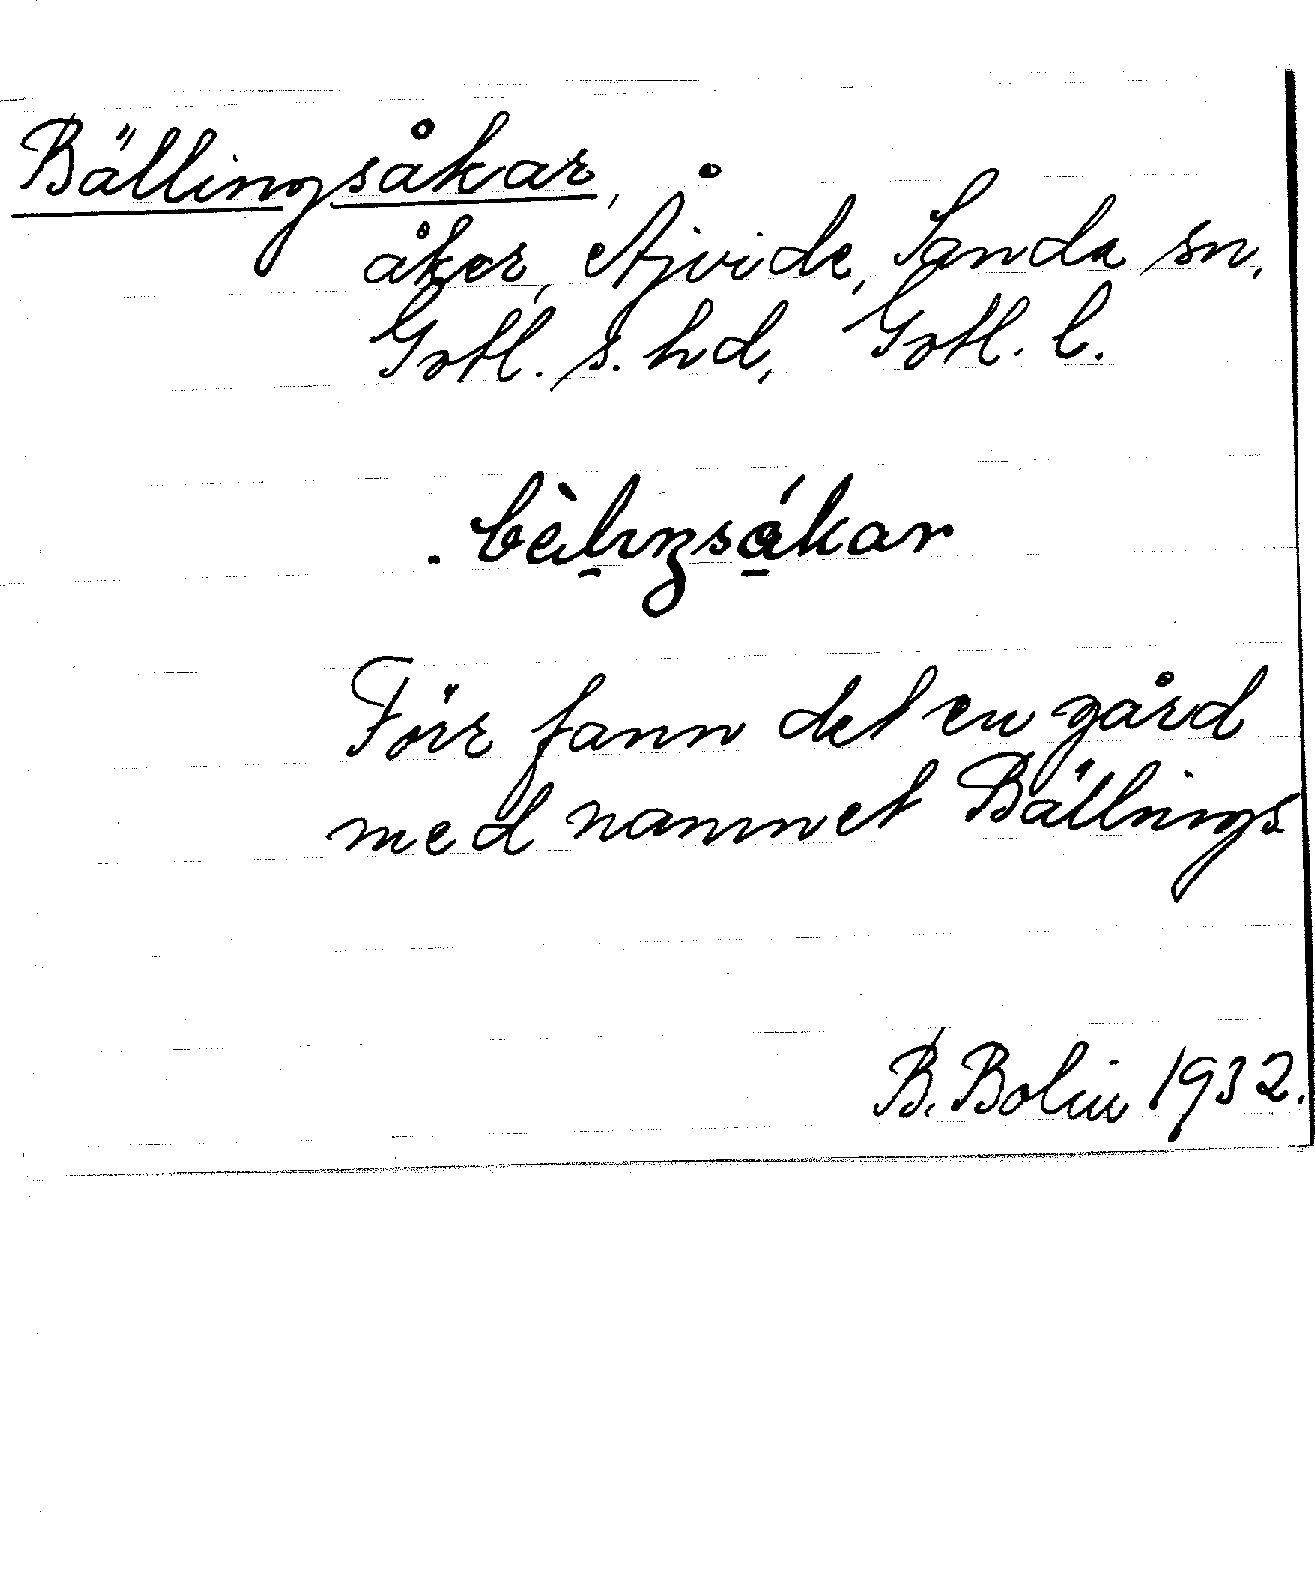 Bällingsåkar,
åker, Ajvide, Sanda sn,
Gotl. s. hd, Gotl. l.
Förr fann det en gård
med namnet Bällings
B. Bolin 1932.